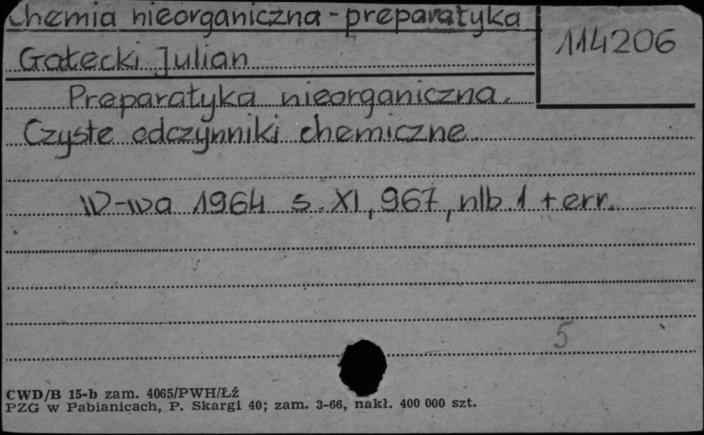 Chemia nieorganiczna - preparatyka
114206
Gałecki Julian
Preparatyka nieorganiczna.
Czyste odczynniki chemiczne.
W-wa 1964 s. XI, 967, nlb. 1 + err.
5
CWD/B 15-b zam. 4065/PWH/Łź
PZG w Pabianicach, P. Skargi 40; zam. 3-66, nakł. 400 000 szt.